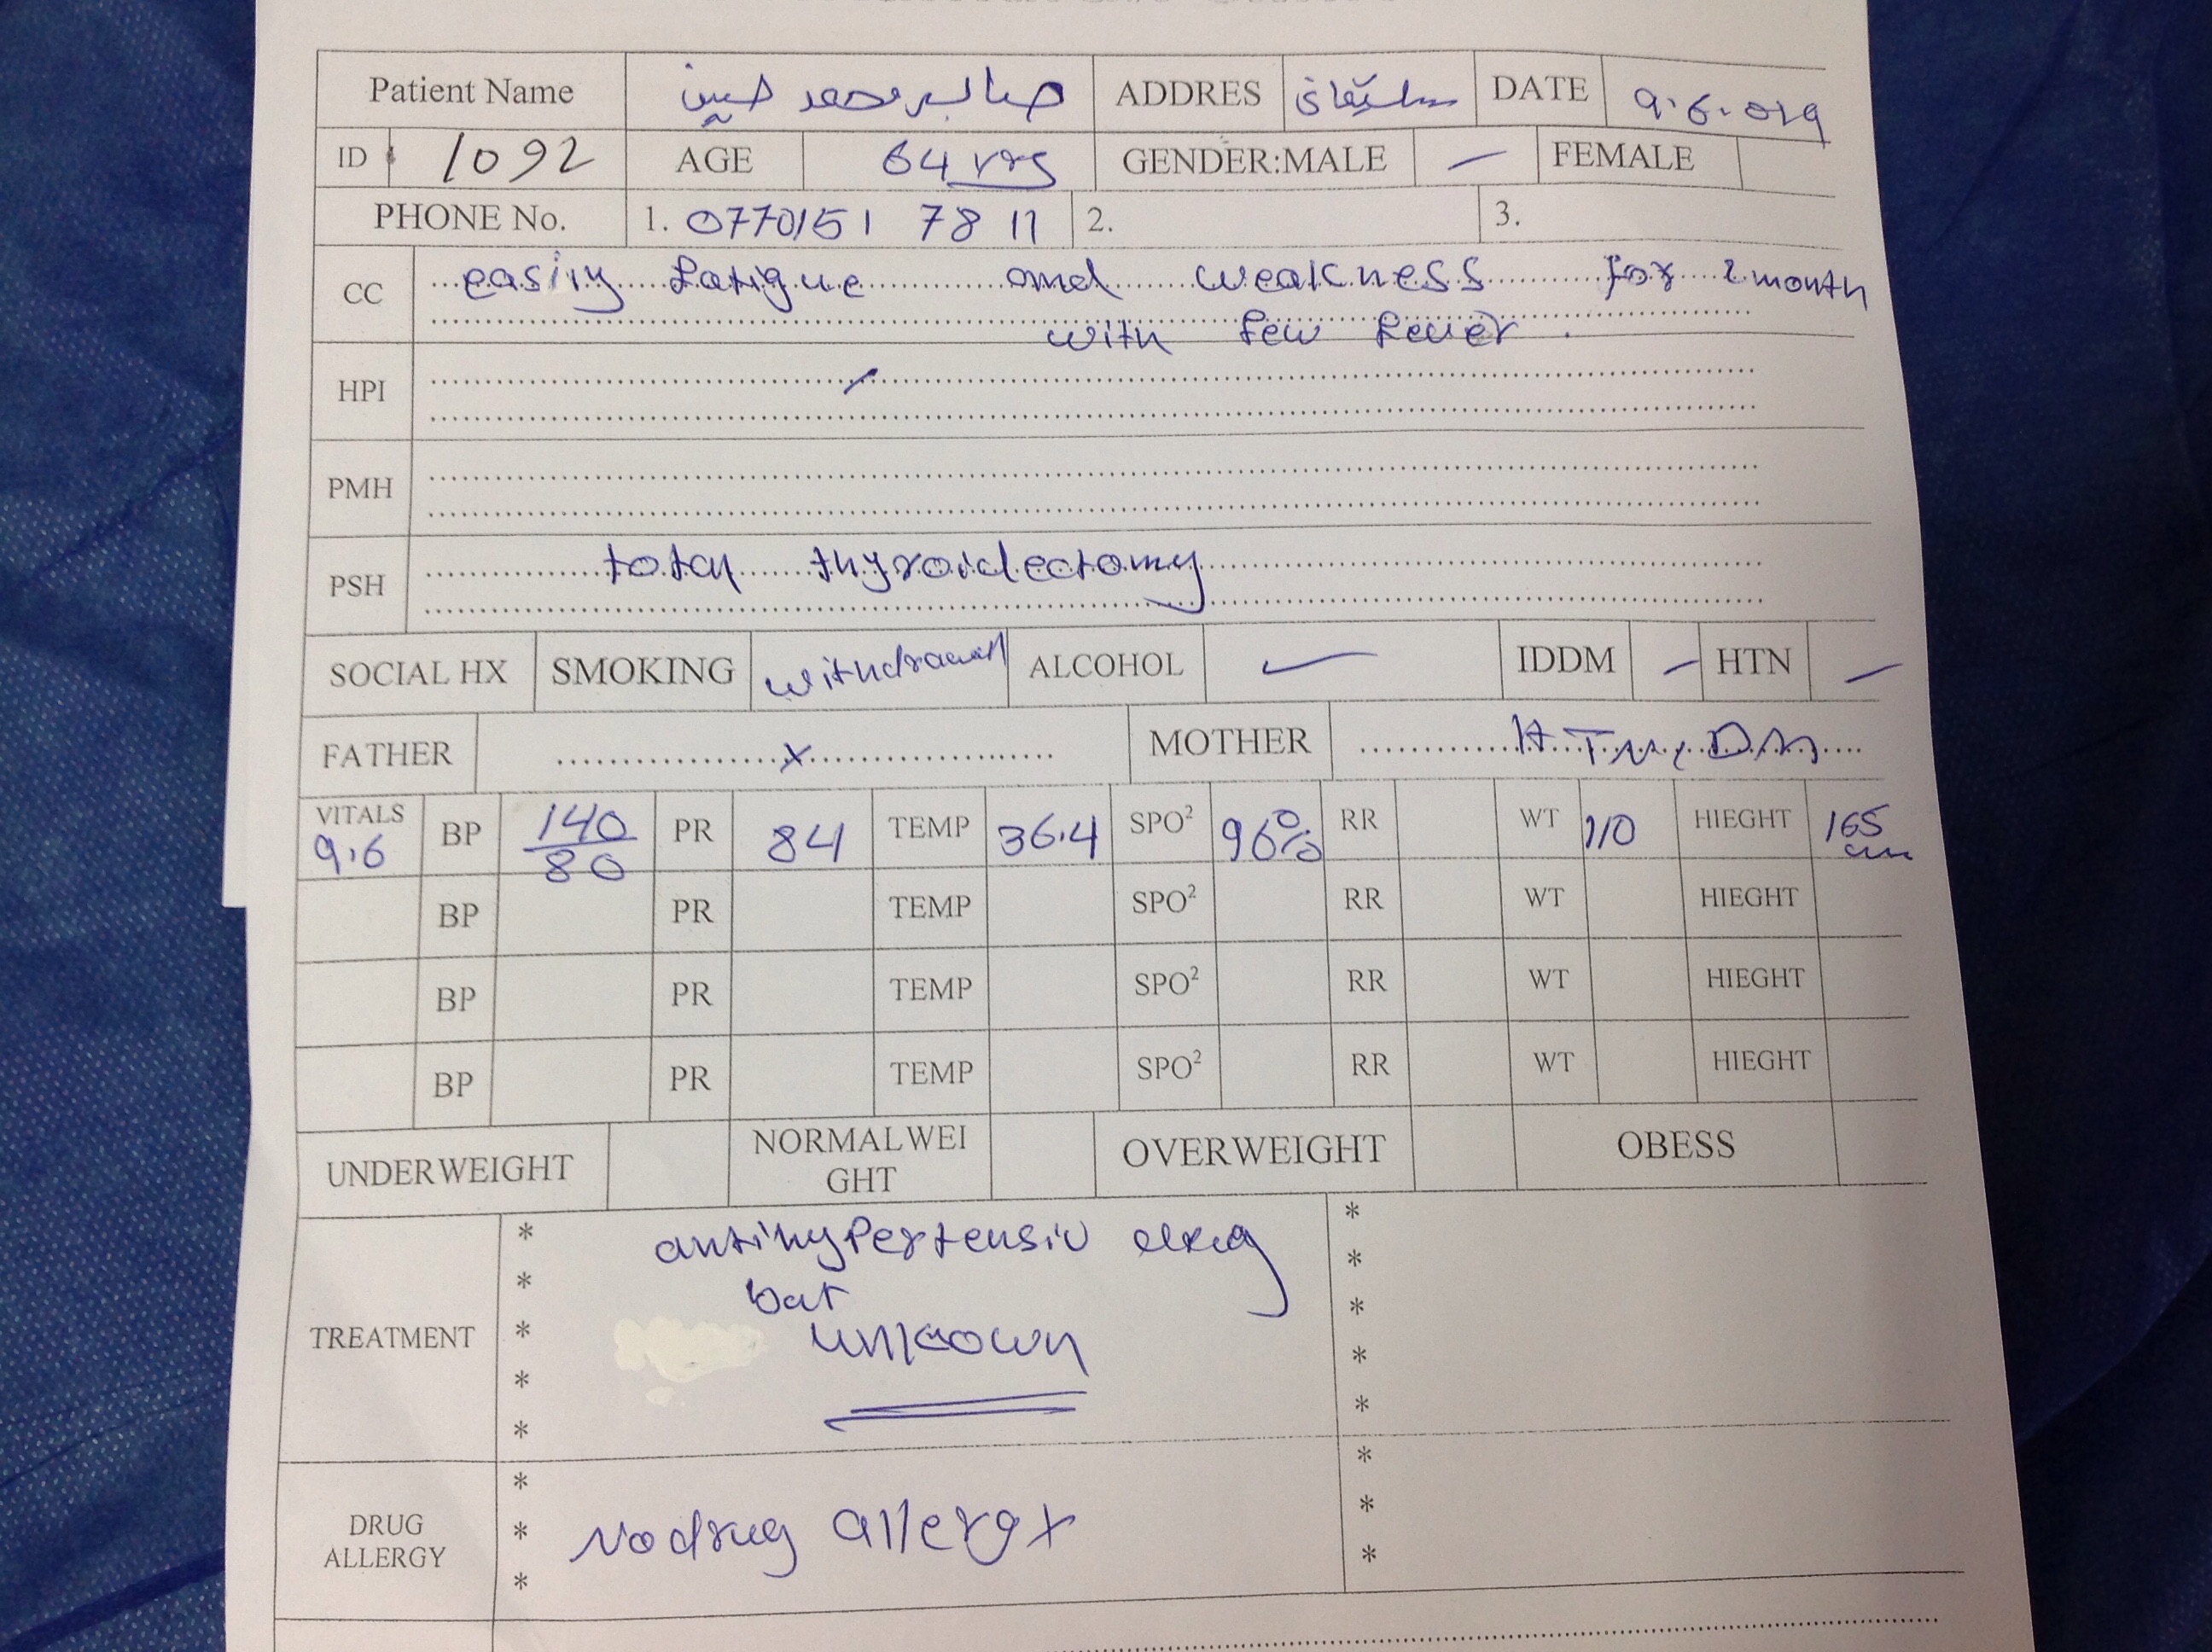 Patient Name صابر محمد حسين ADDRES سلێمانی DATE 9.6.019
ID 1092 AGE 64 yrs GENDER:MALE – FEMALE
PHONE No. 1. 0770151 78 11 2. 3.
CC easily fatigue and weakness for 2 month
with few fever .
HPI
PMH
PSH total thyroidectomy
SOCIAL HX SMOKING withdrawal ALCOHOL IDDM – HTN –
FATHER x MOTHER HTN, DM
VITALS 9.6 BP 140/80 PR 84 TEMP 36.4 SPO² 96% RR WT 110 HIEGHT 165 cm
BP PR TEMP SPO² RR WT HIEGHT
BP PR TEMP SPO² RR WT HIEGHT
BP PR TEMP SPO² RR WT HIEGHT
UNDERWEIGHT NORMALWEI
GHT OVERWEIGHT OBESS
TREATMENT * antihypertensiv drug *
* but *
* unkown *
* *
* *
DRUG
ALLERGY * No drug allergy *
* *
* *